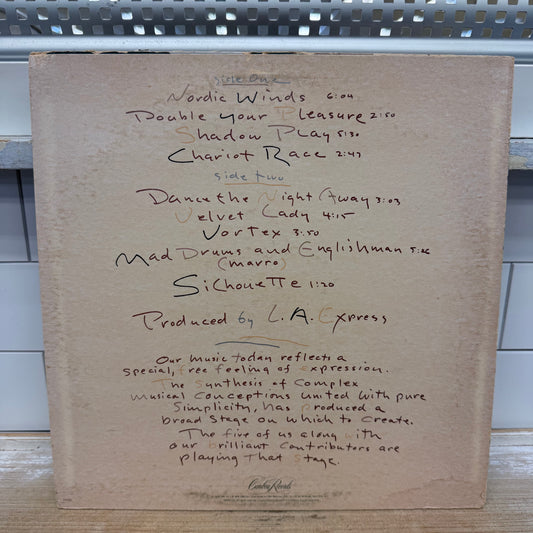 side one
Nordic Winds 6:04
Double Your Pleasure 2:50
Shadow Play 5:30
Chariot Race 2:47
side two
Dance the Night Away 3:03
Velvet Lady 4:15
Vortex 3:50
Mad Drums and Englishman
(mavro)
Silhouette 1:20
Produced by L.A. Express
Our music today reflects a
special, free feeling of expression.
The Synthesis of Complex
musical conceptions united with pure
Simplicity, has produced a
broad stage on which to create.
The five of us along with
our brilliant contributors are
playing that stage.
Caribou Records